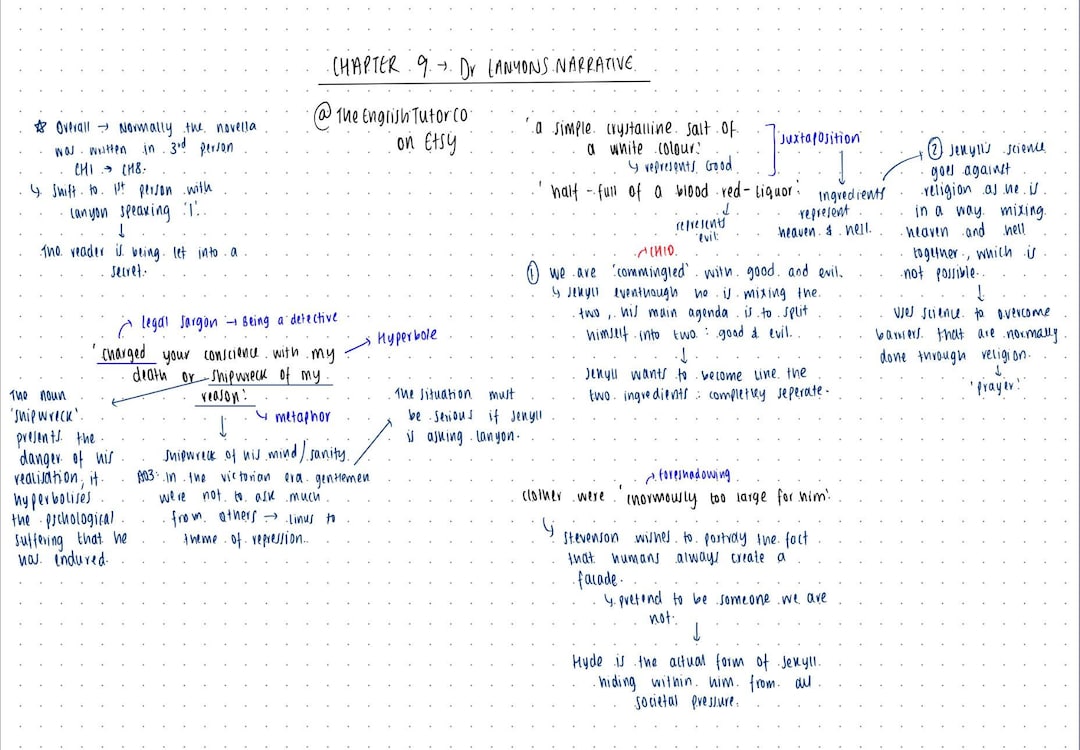 CHAPTER 9 → Dr LANYONS NARRATIVE
@ The English Tutor Co
on Etsy
☆ Overall → Normally the novella
was written in 3rd person
CH1 → CH8.
↳ shift to 1st person with
Lanyon speaking 'I'.
↓
The reader is being let into a
secret.
legal jargon → Being a detective
'charged your conscience with my
death or shipwreck of my
reason'
→ Hyperbole
↳ metaphor
The noun
'shipwreck'
presents the
danger of his
realisation, it
hyperbolises
the pschological
suffering that he
has endured.
↓
shipwreck of his mind/sanity
AO3: In the victorian era gentlemen
were not to ask much
from others → links to
theme of repression.
The situation must
be serious if Jekyll
is asking Lanyon.
'a simple crystalline salt of
a white colour'
↳ represents Good
'half-full of a blood red-liquor'
represents
evil
juxtaposition
ingredients
represent
heaven & hell.
CH10
① we are 'commingled' with good and evil.
↳ Jekyll eventhough he is mixing the
two, his main agenda is to split
himself into two: good & evil.
↓
Jekyll wants to become like the
two ingredients: completley seperate.
② Jekyll's science
goes against
religion as he is
in a way mixing
heaven and hell
together, which is
not possible.
↓
uses science to overcome
barriers that are normally
done through religion.
↓
'prayer'
foreshadowing
clothes were 'enormously too large for him'
↳ Stevenson wishes to portray the fact
that humans always create a
facade.
↳ pretend to be someone we are
not.
↓
Hyde is the actual form of Jekyll
hiding within him from all
societal pressure.